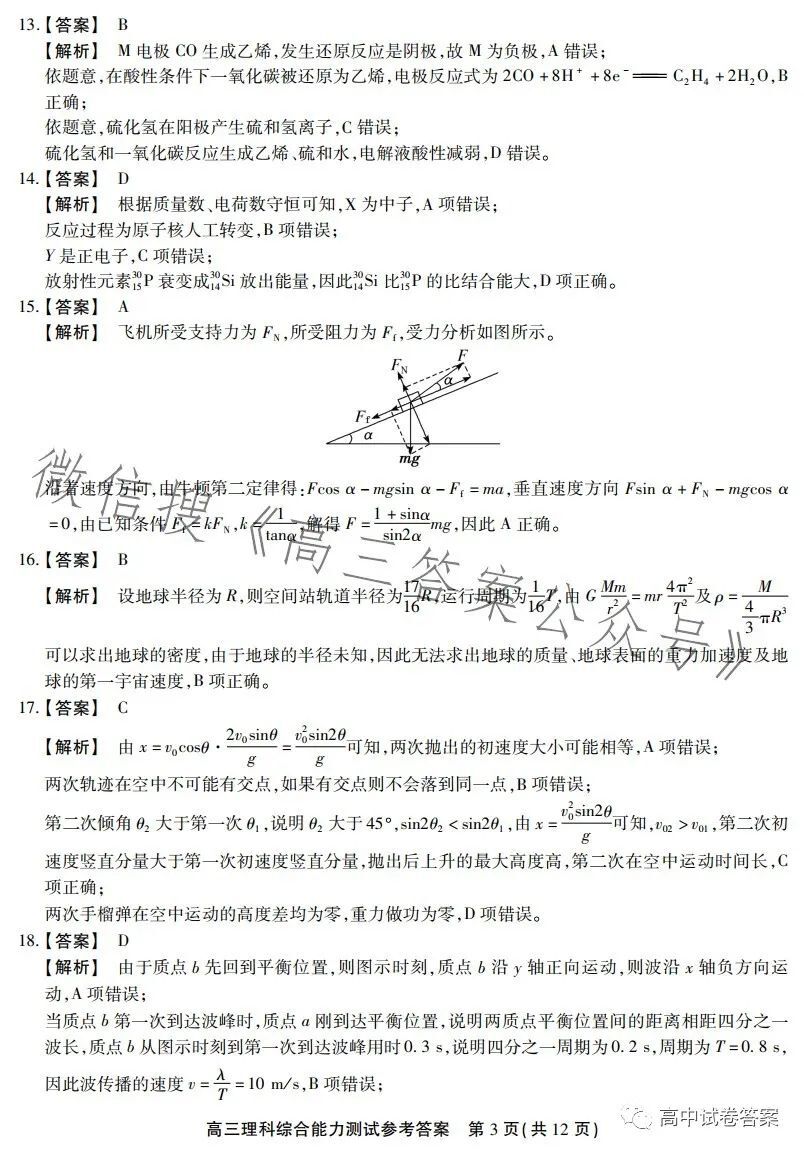 13.【答案】 B
【解析】 M 电极 CO 生成乙烯,发生还原反应是阴极,故 M 为负极,A 错误;
依题意,在酸性条件下一氧化碳被还原为乙烯,电极反应式为 2CO+8H⁺+8e⁻═══C₂H₄+2H₂O,B
正确;
依题意,硫化氢在阳极产生硫和氢离子,C 错误;
硫化氢和一氧化碳反应生成乙烯、硫和水,电解液酸性减弱,D 错误。
14.【答案】 D
【解析】 根据质量数、电荷数守恒可知,X 为中子,A 项错误;
反应过程为原子核人工转变,B 项错误;
Y 是正电子,C 项错误;
放射性元素³⁰₁₅P 衰变成³⁰₁₄Si 放出能量,因此³⁰₁₄Si 比³⁰₁₅P 的比结合能大,D 项正确。
15.【答案】 A
【解析】 飞机所受支持力为 F_N,所受阻力为 F_f,受力分析如图所示。
F_N
F
α
F_f
α
mg
沿着速度方向,由牛顿第二定律得:Fcos α-mgsin α-F_f=ma,垂直速度方向 Fsin α+F_N-mgcos α
=0,由已知条件 F_f=kF_N,k=1/tanα,解得 F=(1+sinα)/sin2α mg,因此 A 正确。
16.【答案】 B
【解析】 设地球半径为 R,则空间站轨道半径为17/16 R,运行周期为1/16 T,由 G Mm/r²=mr 4π²/T² 及 ρ=M/(4/3 πR³)
可以求出地球的密度,由于地球的半径未知,因此无法求出地球的质量、地球表面的重力加速度及地
球的第一宇宙速度,B 项正确。
17.【答案】 C
【解析】 由 x=v₀cosθ·2v₀sinθ/g=v₀²sin2θ/g 可知,两次抛出的初速度大小可能相等,A 项错误;
两次轨迹在空中不可能有交点,如果有交点则不会落到同一点,B 项错误;
第二次倾角 θ₂ 大于第一次 θ₁,说明 θ₂ 大于 45°,sin2θ₂<sin2θ₁,由 x=v₀²sin2θ/g 可知,v₀₂>v₀₁,第二次初
速度竖直分量大于第一次初速度竖直分量,抛出后上升的最大高度高,第二次在空中运动时间长,C
项正确;
两次手榴弹在空中运动的高度差均为零,重力做功为零,D 项错误。
18.【答案】 D
【解析】 由于质点 b 先回到平衡位置,则图示时刻,质点 b 沿 y 轴正向运动,则波沿 x 轴负方向运
动,A 项错误;
当质点 b 第一次到达波峰时,质点 a 刚到达平衡位置,说明两质点平衡位置间的距离相距四分之一
波长,质点 b 从图示时刻到第一次到达波峰用时0.3 s,说明四分之一周期为0.2 s,周期为 T=0.8 s,
因此波传播的速度 v=λ/T=10 m/s,B 项错误;
高三理科综合能力测试参考答案 第 3 页(共 12 页)
微信搜《高三答案公众号》
高中试卷答案